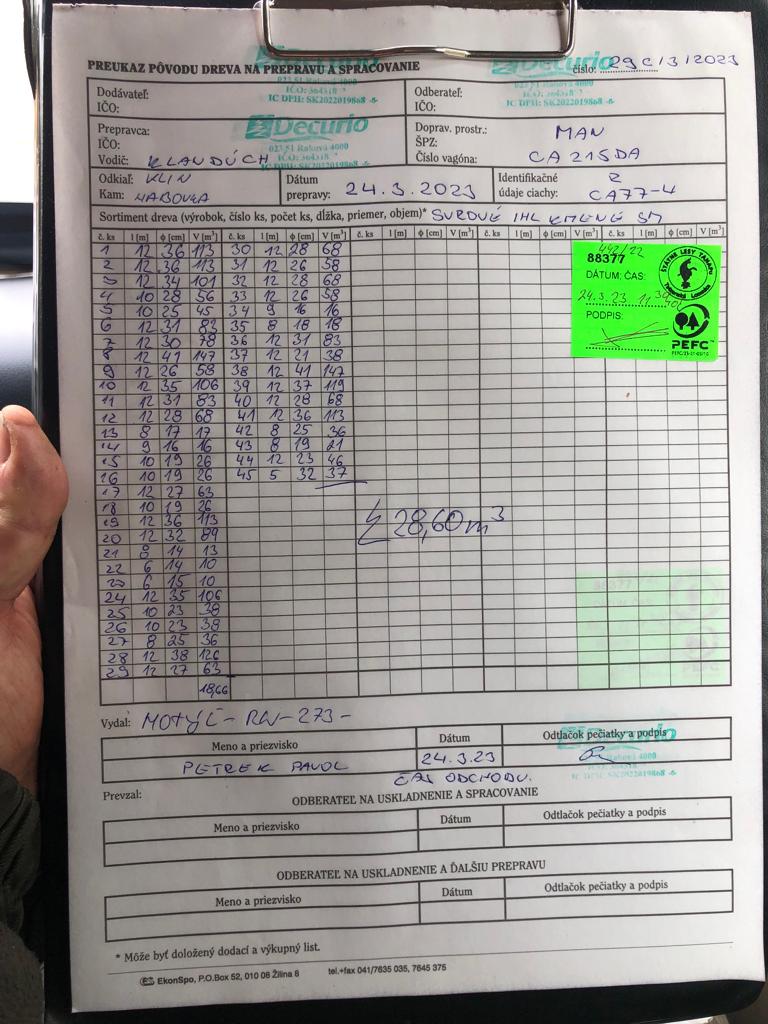 PREUKAZ PÔVODU DREVA NA PREPRAVU A SPRACOVANIE
Decurio
023 51 Raková 4000
IČO: 364318
IČ DPH: SK2022019868
Decurio
číslo: 29C/3/2023
IČ DPH: SK2022019868 -5-
Dodávateľ:
IČO:
Odberateľ:
IČO:
Prepravca:
IČO:
Vodič: KLANDÚCH
Decurio
023 51 Raková 4000
IČO: 364318
IČ DPH: SK2022019868 -5-
Doprav. prostr.: MAN
ŠPZ:
Číslo vagóna: CA215DA
Odkiaľ: KLIN
Kam: HABOVKA
Dátum
prepravy: 24.3.2023
Identifikačné 2
údaje ciachy: CA77-4
Sortiment dreva (výrobok, číslo ks, počet ks, dĺžka, priemer, objem)* SUROVÉ IHL KMENE SM
č. ks l [m] φ [cm] V [m³] č. ks l [m] φ [cm] V [m³] č. ks l [m] φ [cm] V [m³] č. ks l [m] φ [cm] V [m³] č. ks l [m] φ [cm] V [m³]
1 12 36 113 30 12 28 68
2 12 36 113 31 12 26 58
3 12 34 101 32 12 28 68
4 10 28 56 33 12 26 58
5 10 25 45 34 9 16 16
6 12 31 83 35 8 18 18
7 12 30 78 36 12 31 83
8 12 41 147 37 12 21 38
9 12 26 58 38 12 41 147
10 12 35 106 39 12 37 119
11 12 31 83 40 12 28 68
12 12 28 68 41 12 36 113
13 8 17 17 42 8 25 36
14 9 16 16 43 8 19 21
15 10 19 26 44 12 23 46
16 10 19 26 45 5 32 37
17 12 27 63
18 10 19 26
19 12 36 113
20 12 32 89
21 8 14 13
22 6 14 10
23 6 15 10
24 12 35 106
25 10 23 38
26 10 23 38
27 8 25 36
28 12 38 126
29 12 27 63
18,66
Σ 28,60 m³
442/22
88377
DÁTUM; ČAS:
24.3.23 11
PODPIS:
ŠTÁTNE LESY TANAPu
Tatranská Lomnica
PEFC
Vydal: MOTÝĽ - RN - 273 -
Meno a priezvisko Dátum Odtlačok pečiatky a podpis
PETREK PAVOL 24.3.23
Decurio
IČ DPH: SK2022019868 -5-
ČAS ODCHODU.
Prevzal: ODBERATEĽ NA USKLADNENIE A SPRACOVANIE
Meno a priezvisko Dátum Odtlačok pečiatky a podpis
ODBERATEĽ NA USKLADNENIE A ĎALŠIU PREPRAVU
Meno a priezvisko Dátum Odtlačok pečiatky a podpis
* Môže byť doložený dodací a výkupný list.
EkonSpo, P.O.Box 52, 010 08 Žilina 8 tel.+fax 041/7635 035, 7645 375